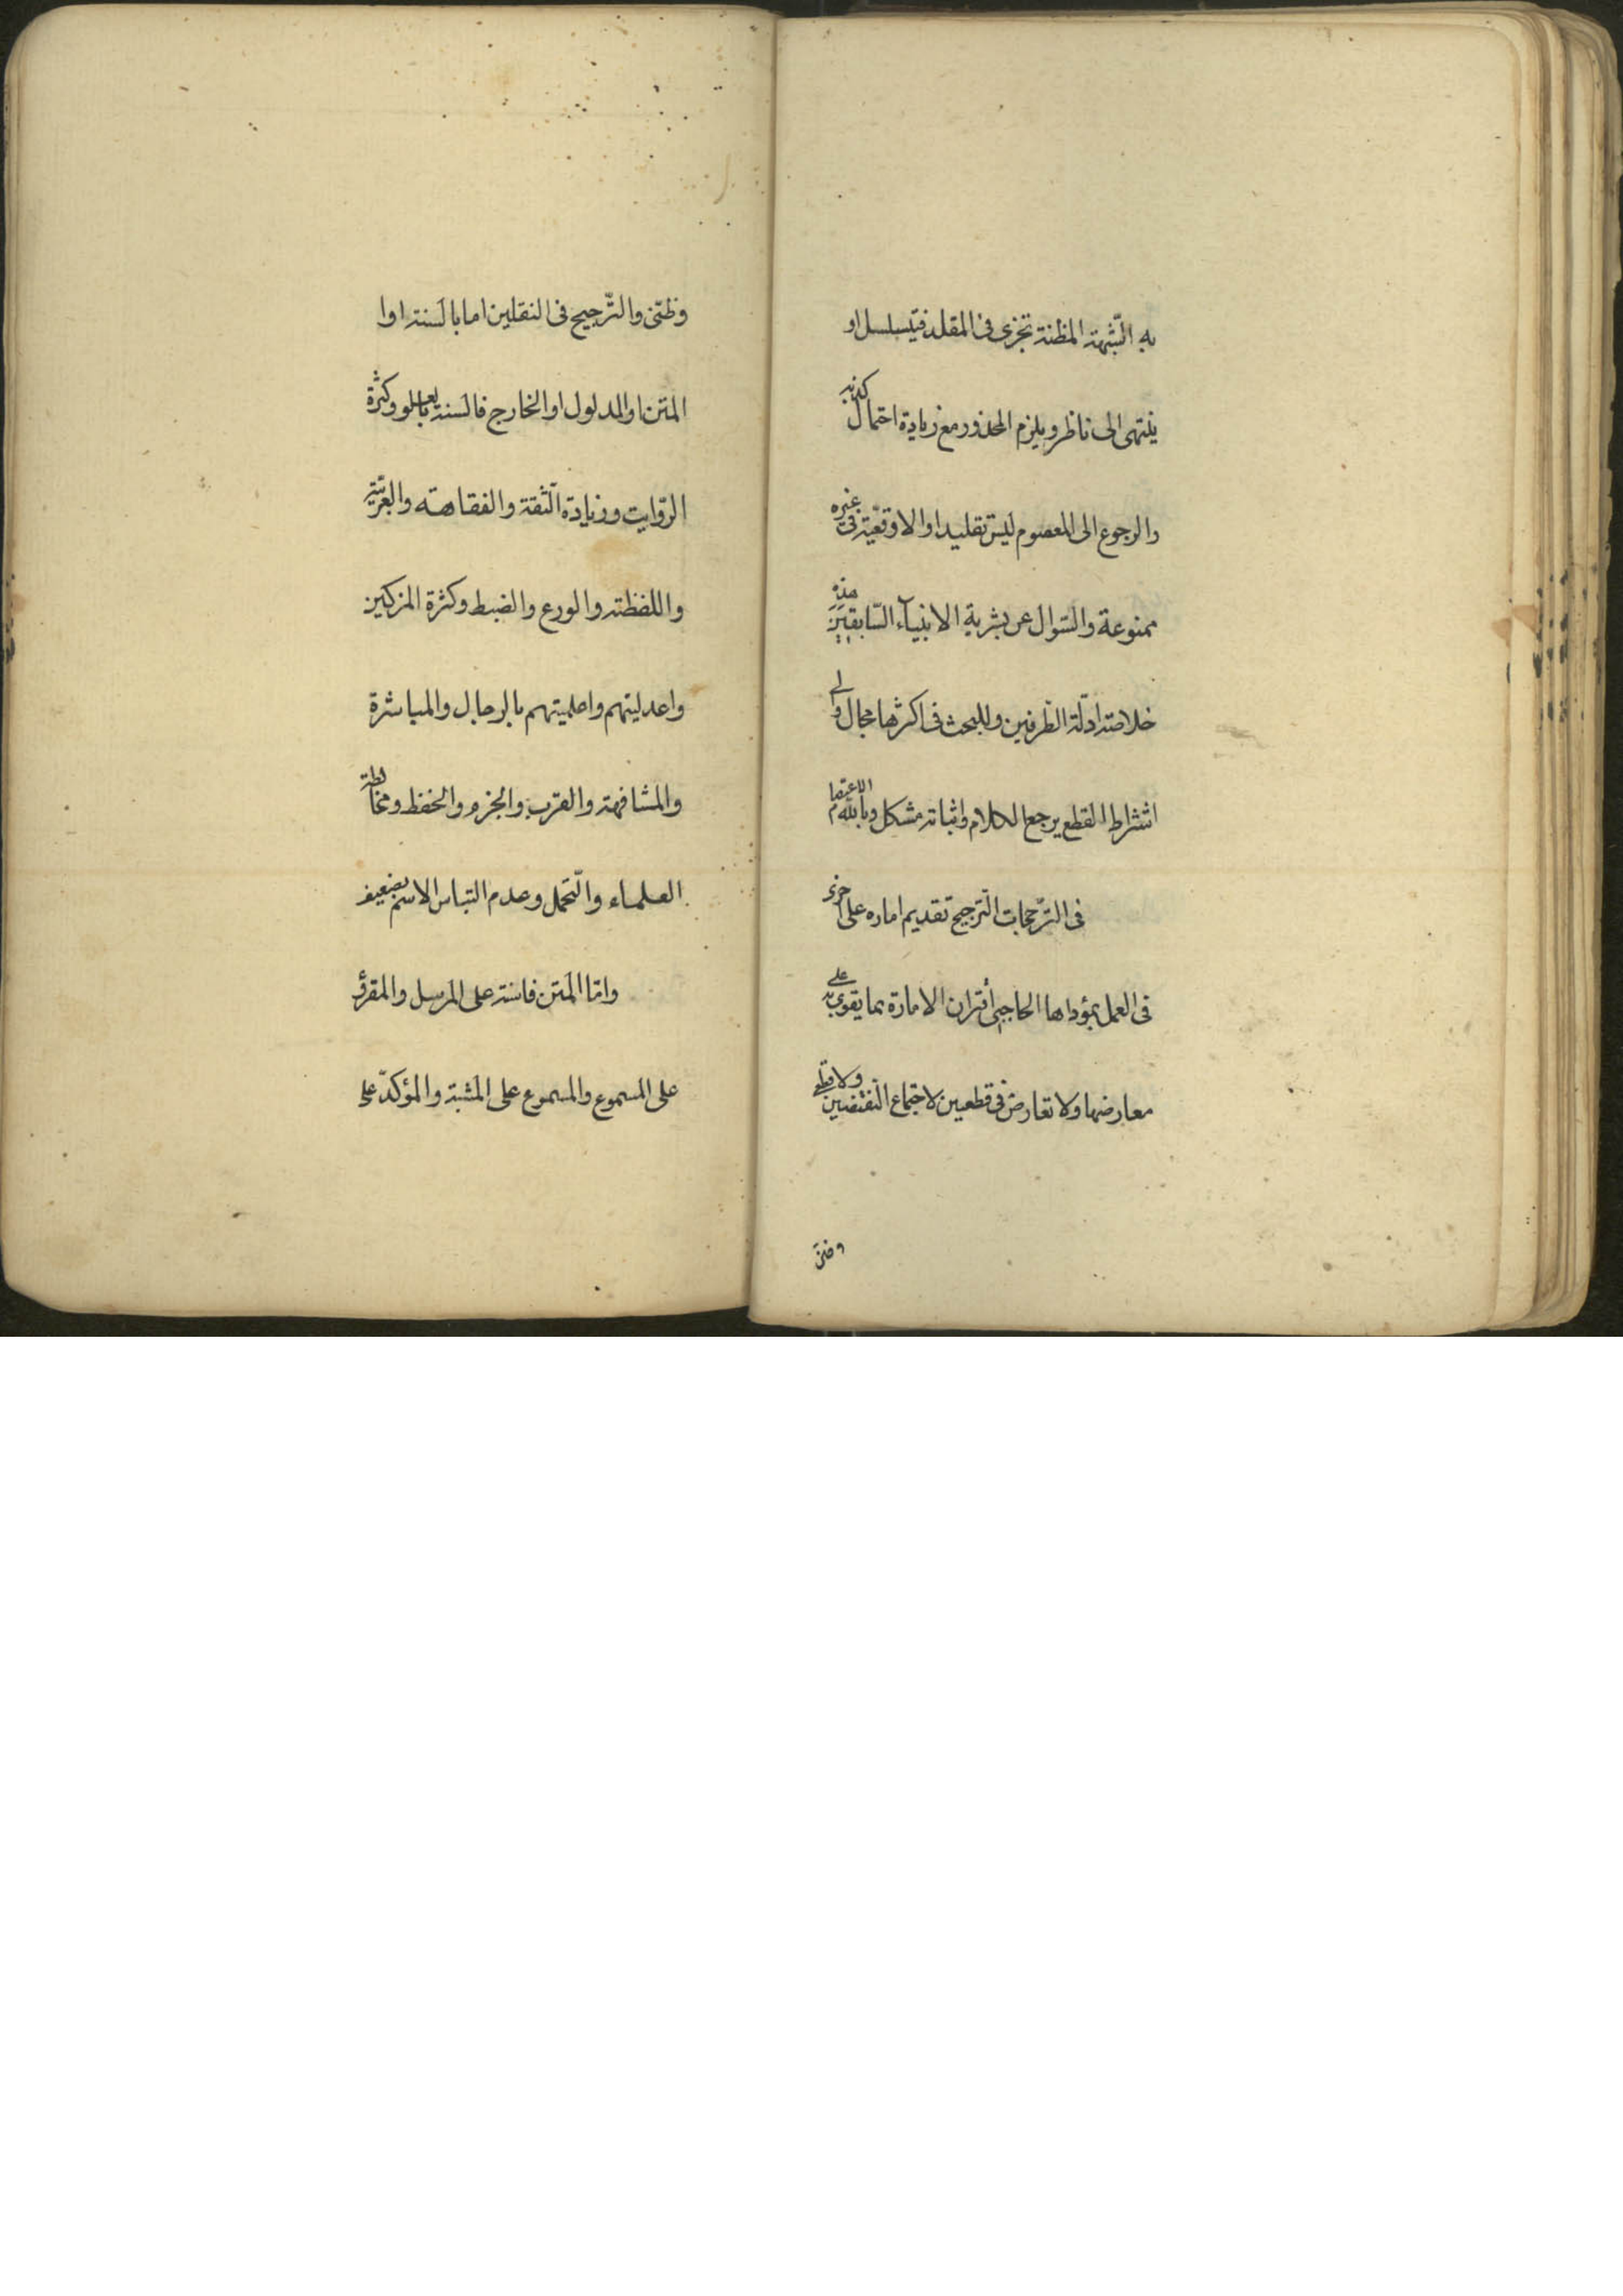 به الشبهة المظنة تجزى فى المقلد فيتسلسل او
ينتهى الى ناظر ويلزم المحذور مع زيادة احتمال كذبه
والرجوع الى المعصوم ليس تقليدا والاوقعية فى غيره
ممنوعة والسؤال عن بشرية الانبياء السابقين هذه
خلاصة ادلة الطرفين وللبحث فى اكثرها مجال و
اشتراط القطع يرجع الكلام واثباته مشكل وبالله الاعتصام
فى الترجيحات الترجيح تقديم اماره على اخرى
فى العمل بمؤداها الحاجبى اقتران الامارة بما يقوى به على
معارضها ولا تعارض فى قطعيين لاجتماع النقيضين ولا قطعى
وظنى
وظنى والترجيح فى النقلين اما بالسند او ا
المتن او المدلول او الخارج فالسند بالعلو وكثرة
الرواية وزيادة الثقة والفقاهة والعربية
واللفظة والورع والضبط وكثرة المزكين
واعدليتهم واعلميتهم بالرجال والمباشرة
والمشافهة والقرب والجزم والحفظ ومخالطة
العلماء والتحمل وعدم التباس الاسم بضعيف
واما المتن فاسنه على المرسل والمقرؤ
على المسموع والمسموع على المشبة والمؤكد على